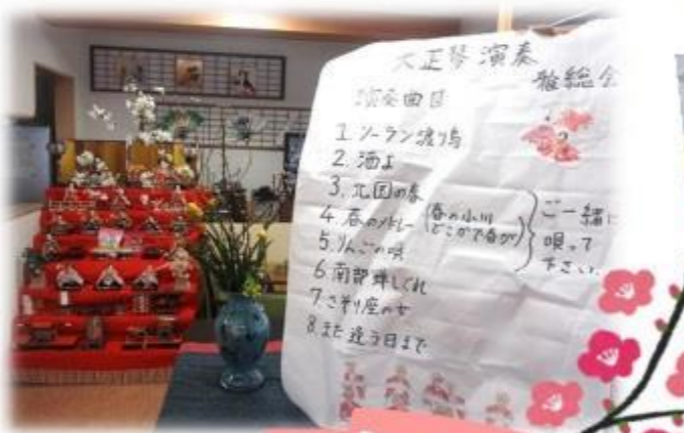 大正琴演奏
雅総会
演奏曲目
1. ソーラン渡り鳥
2. 酒よ
3. 北国の春
4. 春のメドレー (春の小川 どこかで春が)
5. りんごの唄
6 南部蝉しぐれ
7 さそり座の女
8. また逢う日まで
ご一緒に
唄って
下さい